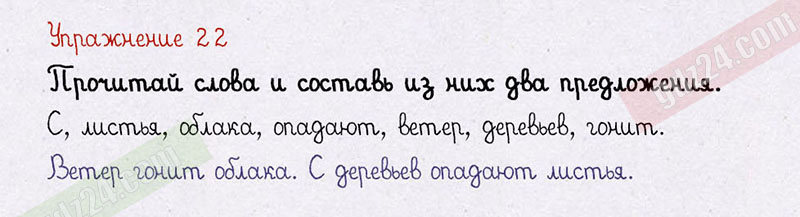 Упражнение 22
Прочитай слова и составь из них два предложения.
С, листья, облака, опадают, ветер, деревьев, гонит.
Ветер гонит облака. С деревьев опадают листья.
gdz24.com
gdz24.com